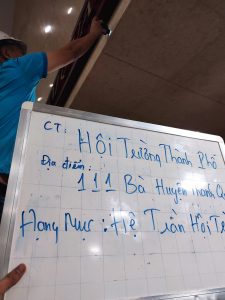 CT: Hội Trường Thành Phố
Địa điểm: 111 Bà Huyện Thanh Qu
Hạng Mục: Hệ Trần Hội Tr